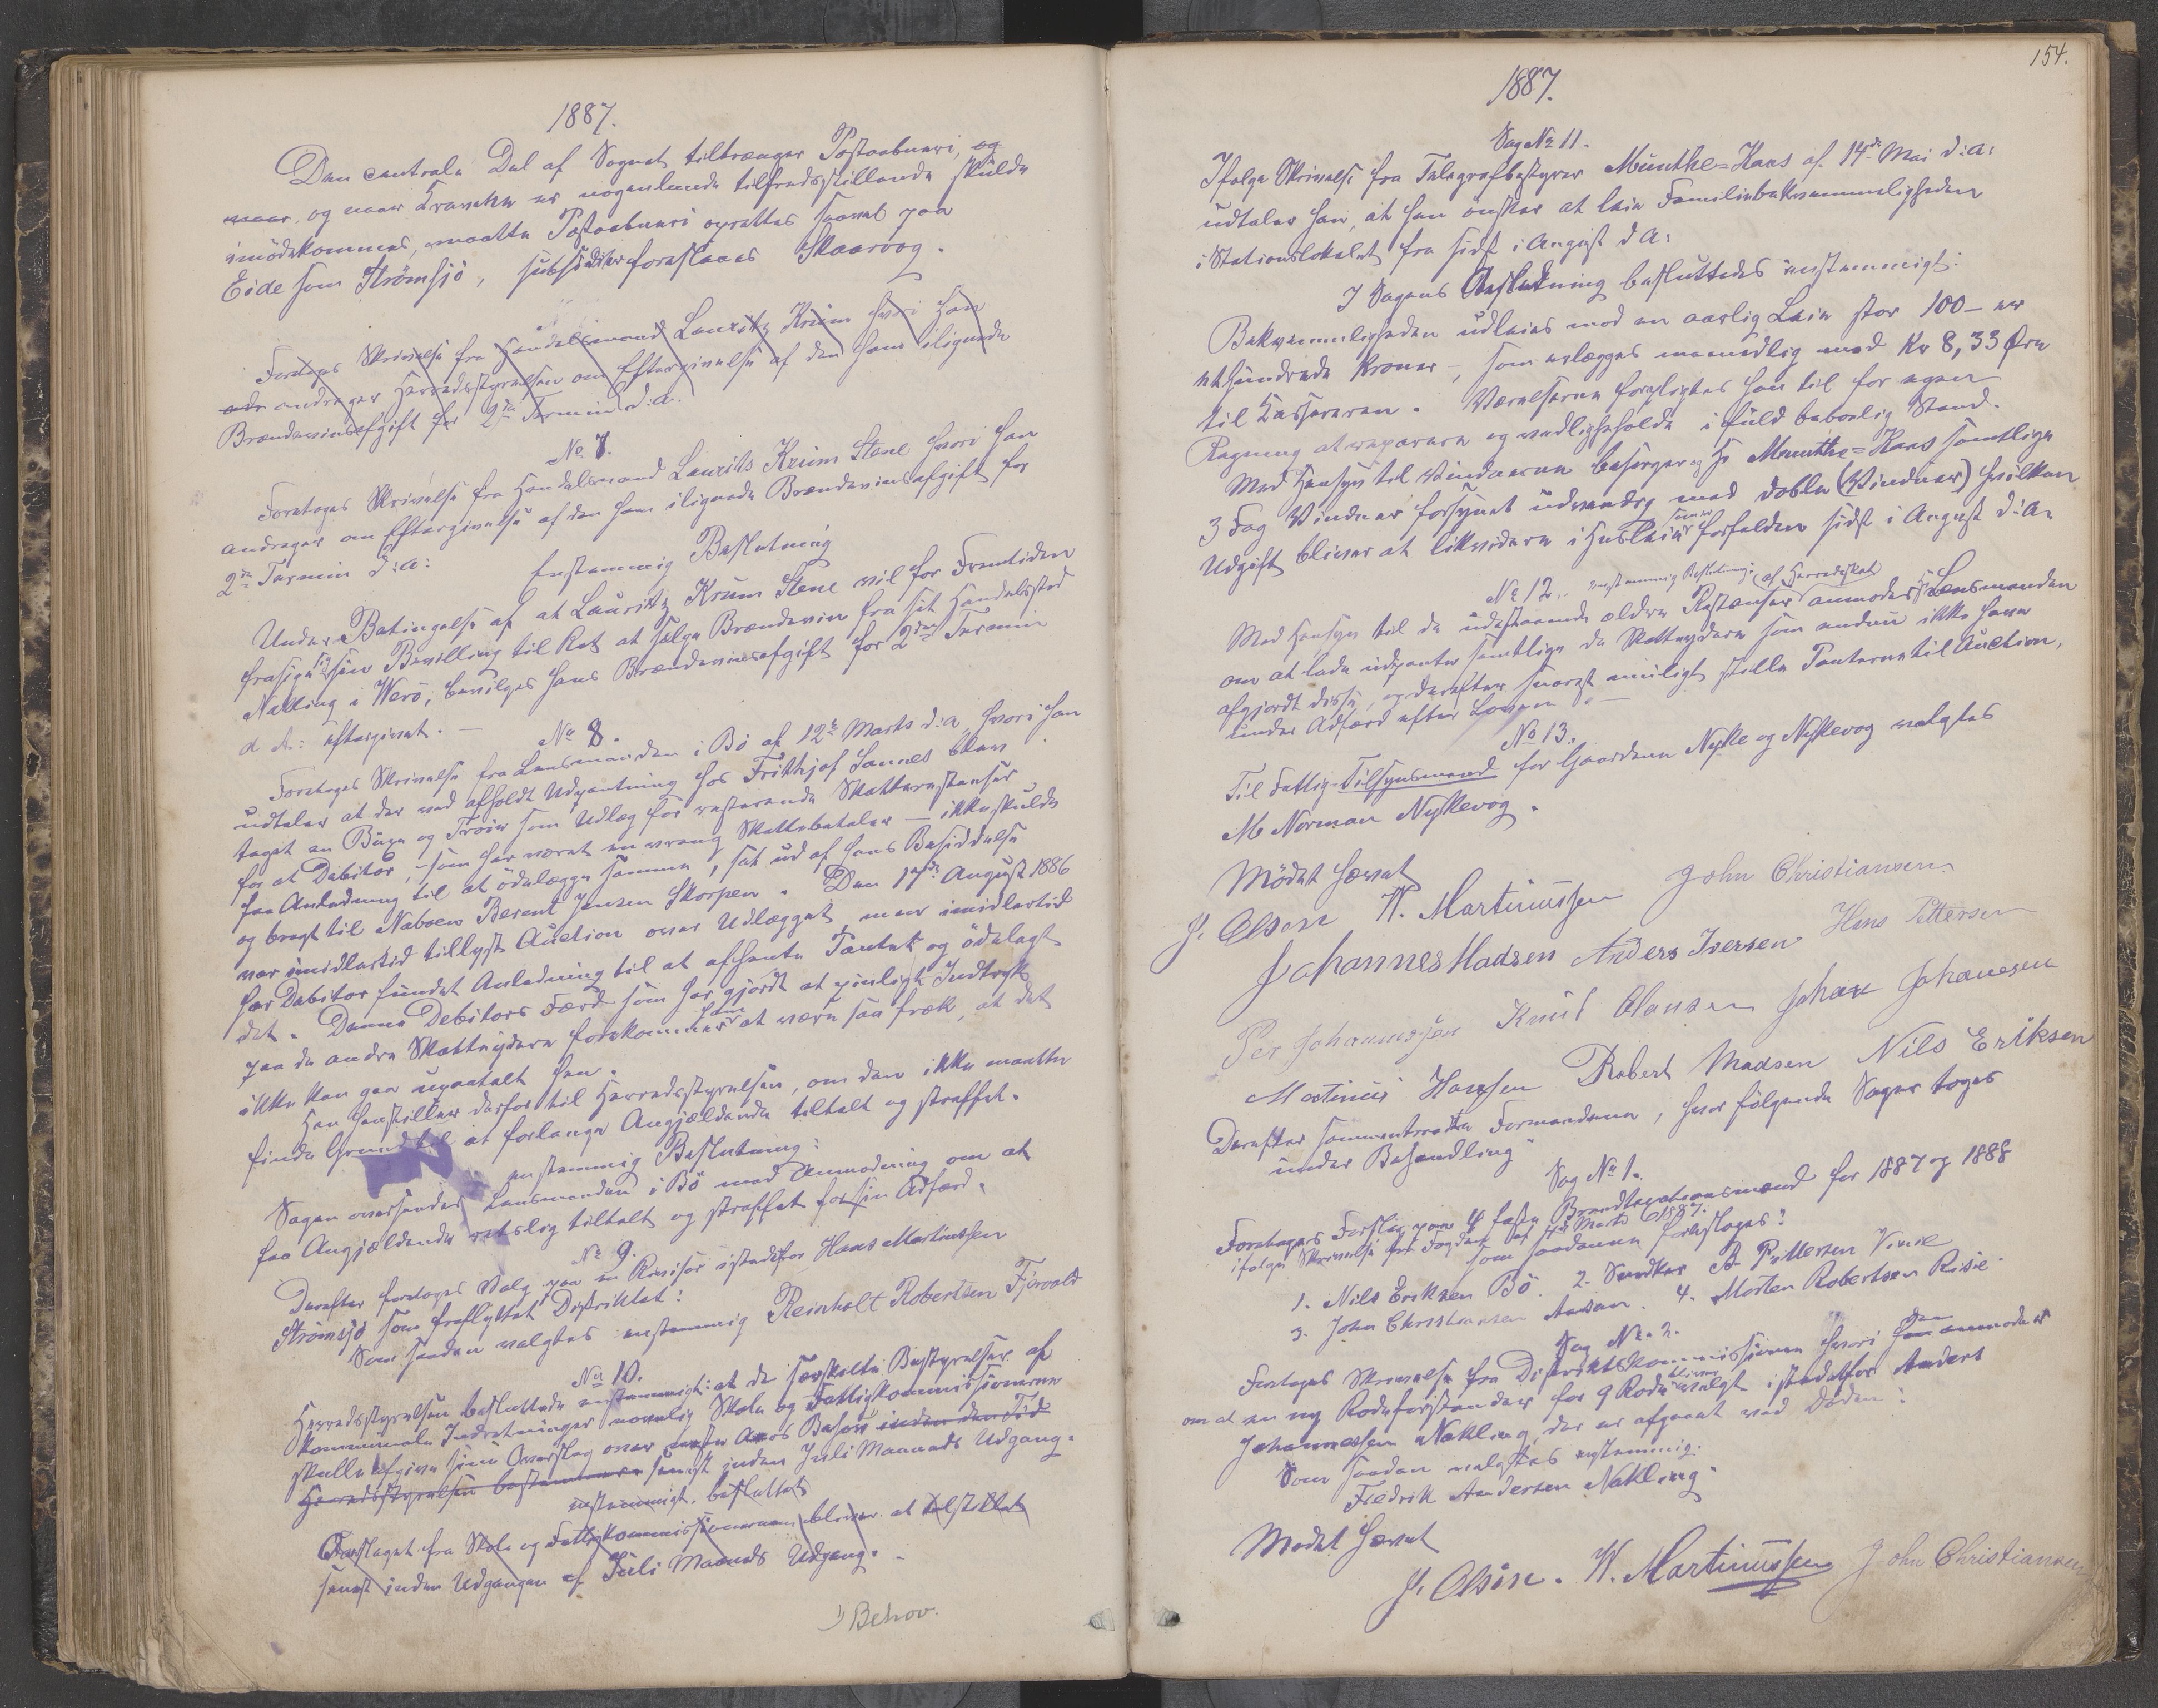 1887.
Den centrale Del af Sognet tiltrænger Postaabneri, og
naar, og naar Kravene er nogenlunde tilfredsstillende skulde
imødekommes, maatte Postaabneri oprettes saavel paa
Eide som Strømsjö, subsidiær foreslaaes Skaarvog.
Foretoges Skrivelse fra Handelsmand Lauritz Krüm hvori Han
andrager Herredsstyrelsen om Eftergivelse af den ham ilignede
Brændevinsafgift for 2den Termin d:a.
No 7.
Foretoges Skrivelse fra Handelsmand Laurits Krüm Stene hvori han
andrager om Eftergivelse af den ham ilignede Brændevinsafgift for
2den Termin d:a:
Enstemmig Beslutning
Under Betingelse af at Lauritz Krum Stene vil for Fremtiden
frasige sig sin Bevilling til Ret at sælge Brændevin fra sit Handelssted
i Werö, bevilges hans Brændevinsafgift for 2den Termin
d a: eftergivet. —
No 8.
Foretoges Skrivelse fra Lensmanden i Bö af 12te Marts d:a, hvori han
udtaler at der ved afholdt Udpantning hos Frithjof Sannes blev
taget en Buxe og Trøie som Udlæg for resterende Skatterestanser
for at Debitor, som har været en vrang Skattebetaler — ikke skulde
faa Anledning til at ödelægge samme, sat ud af hans Besiddelse
og bragt til Naboen Berent Jensen Skorpen. Den 17de August 1886
var imidlertid tillyst Auction over Udlægget, men imidlertid
har Debitor fundet Anledning til at afhente Pantet og ödelagt
det. Denne Debitors Færd som har gjordt et pinligt Indtryk
paa de andre Skatteydere forekommer ham at være saa fræk, at det
ikke kan gaa upaatalt hen.
Han henstiller derfor til Herredsstyrelsen, om den ikke maatte
finde Grund til at forlange Angjældende tiltalt og straffet.
enstemmig Beslutning:
Sagen oversendes Lensmanden i Bö med Anmodning om at
faa Angjældende retslig tiltalt og straffet for sin Adfærd.
No 9.
Derefter foretoges Valg paa en Revisor istedetfor Hans Martinssen
Strömsjö som fraflyttet Distriktet:
Som saadan valgtes enstemmig Reinholt Robertsen Fjærvold
No 10.
Herredsstyrelsen besluttede enstemmigt: at de særskilte Bestyrelser af
kommunale Indretninger navnlig Skole og Fattigkommissionerne
skulle afgive sine Overslag over næste Aars Behov inden den Tid
Herredsstyrelsen bestemmer senest inden Juli Maaneds Udgang.
enstemmigt. besluttet
Forslaget fra Skole og Fattigkommissionerne bliver at tilstillet
senest inden Udgangen af Juli Maaneds Udgang.
1) Behov.
154.
1887.
Sag No 11.
Ifølge Skrivelse fra Telegrafbestyrer Munthe=Kaas af 14de Mai d:a:
udtaler han, at han önsker at leie Familiebekvemmeligheden
i Stationslokalet fra sidst i August d A:
I Sagens Anledning besluttedes enstemmigt:
Bekvemmeligheden udleies mod en aarlig Leie stor 100 – er
ethundrede Kroner –, som erlægges maanedlig med Kr 8,33 Øre
til Kassereren. Værelserne forpligtes han til for egen
Regning at reparere og vedligeholde i fuld beboelig Stand.
Med Hensyn til Vinduerne besørger og Hr Munthe=Kaas samtlige
3 Fag Vinduer forsynet udvendig med doble (Vinduer) hvilken
Udgift bliver at likvidere i Husleien forfalden sidst i August d:a.
No 12. enstemmig Beslutning:
Med Hensyn til de udestaaende ældre Restanser af Herredsskat anmodes Lensmanden
om at lade udpante samtlige de Skatteydere som endnu ikke have
afgjordt disse, og derefter snarest muligt stille Panterne til Auction,
under Adfærd efter Loven. —
No 13.
Til Fattig-Tilsynsmand for Gaardene Nykke og Nykkevog valgtes
M Norman Nykkevog.
Mödet hævet
J. Olsen W. Martinussen John Christiansen
Johannes Madsen Anders Iversen Hans Pettersen
Per Johannessen Knud Olausen Johan Johanesen
Martinus Hansen Robert Madsen Nils Eriksen
Derefter sammentraadte Formændene, hvor fölgende Sager toges
under Behandling
Sag No 1.
Foretoges Forslag paa 4 faste Brandtaxationsmænd for 1887 og 1888
ifølge Skrivelse fra Fogden af Marts 1887.
som saadanne foreslages:
1. Nils Eriksen Bö. 2. B. Pettersen Vinje
3. John Christiansen 4. Morten Robertsen Risie.
Sag No. 2.
Foretoges Skrivelse fra Distriktskommissionen hvori den anmoder
om at en ny Rodeforstander for 9 Rode bliver valgt istedetfor Anders
Johannessen Nakling, der er afgaaet ved Döden:
Som saadan valgtes enstemmig.
Fredrik Andersen Nakling.
Mödet hævet
J. Olsen. W. Martinussen John Christiansen